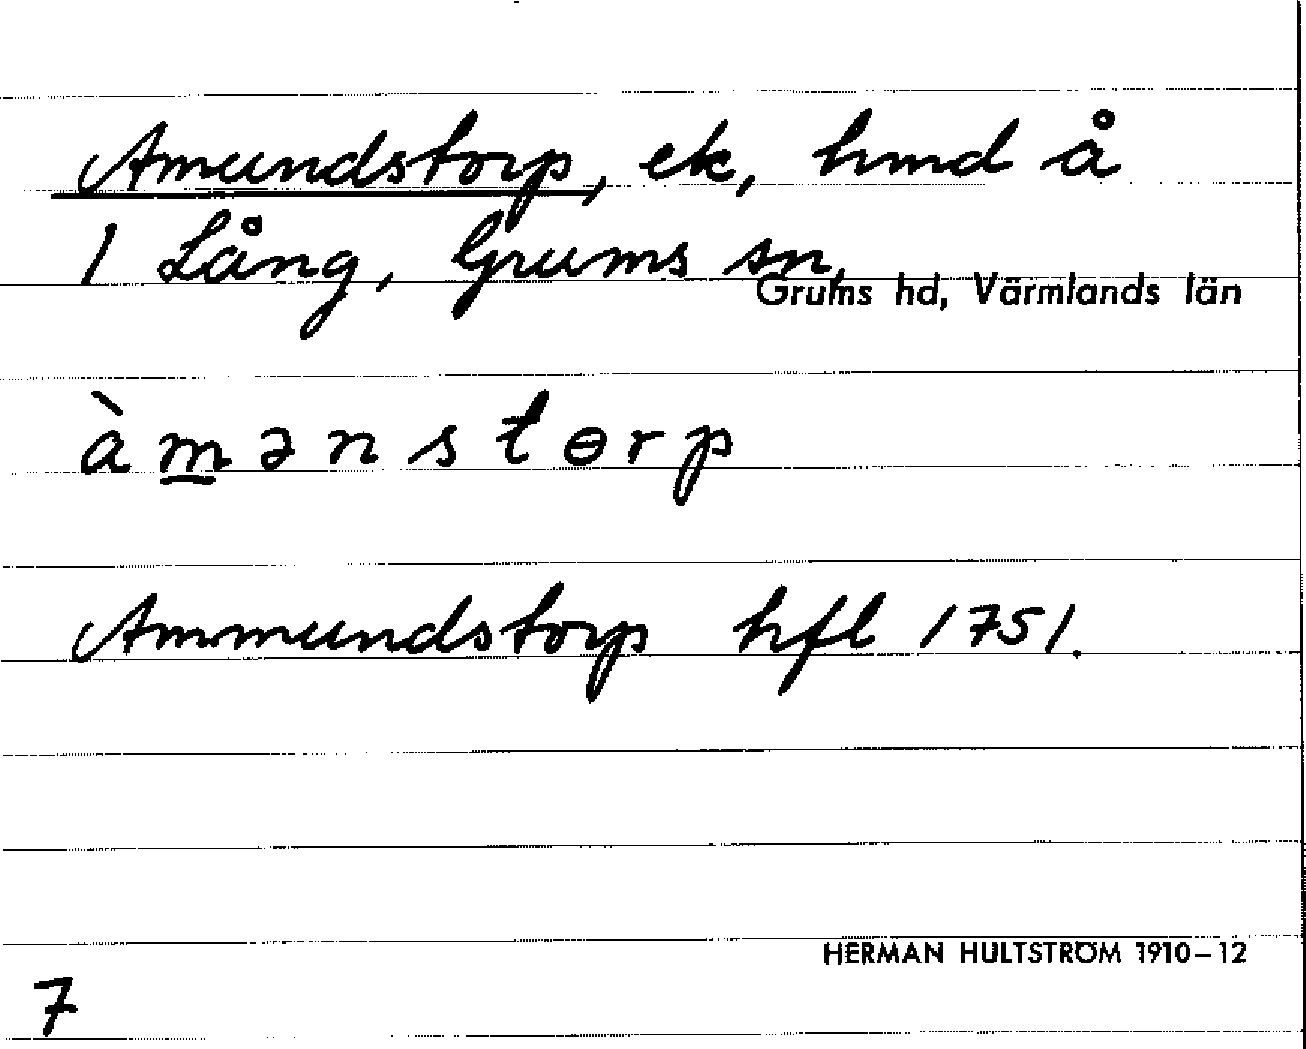 Amundstorp, ek, hmd å
1 Lång, Grums sn,
Grums hd, Värmlands län
àm̲ənstɵrp
Ammundstorp hfl 1751.
HERMAN HULTSTRÖM 1910–12
7